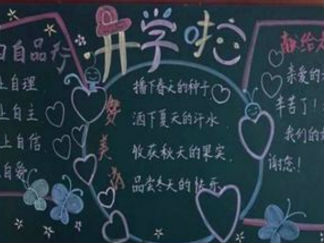 开学啦
自品行
上自理
上自主
上自信
自爱
播下春天的种子
洒下夏天的汗水
收获秋天的果实
品尝冬天的快乐
献给
亲爱的
辛苦了!
我们的
谢您!